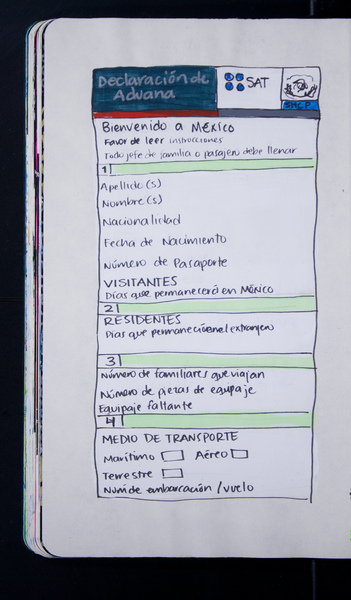 Declaración de
Aduana
SAT
SHCP
Bienvenido a México
Favor de leer instrucciones
Todo jefe de familia o pasajero debe llenar
1
Apellido(s)
Nombre(s)
Nacionalidad
Fecha de Nacimiento
Número de Pasaporte
VISITANTES
Días que permanecerá en México
2
RESIDENTES
Días que permaneció en el extranjero
3
Número de familiares que viajan
Número de piezas de equipaje
Equipaje faltante
4
MEDIO DE TRANSPORTE
Marítimo Aéreo
Terrestre
Num de embarcación / vuelo